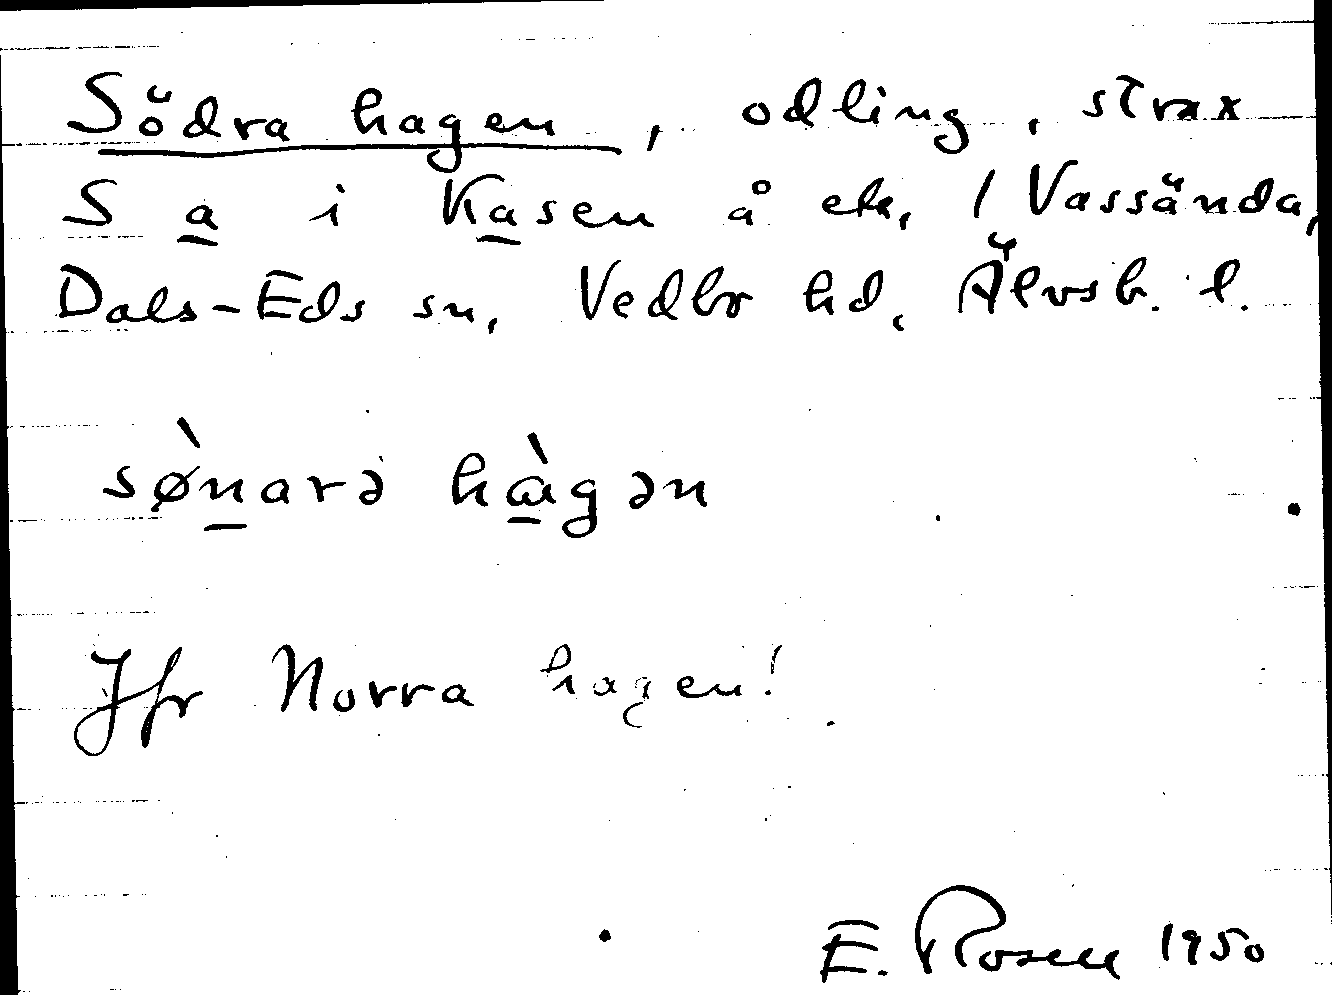 Södra hagen, odling, strax
S a i Kasen å ek, / Vassända,
Dals-Eds sn, Vedbo hd, Älvsb. l.
sø̀narə hàgən
Jfr Norra hagen!
E. Rosell 1950